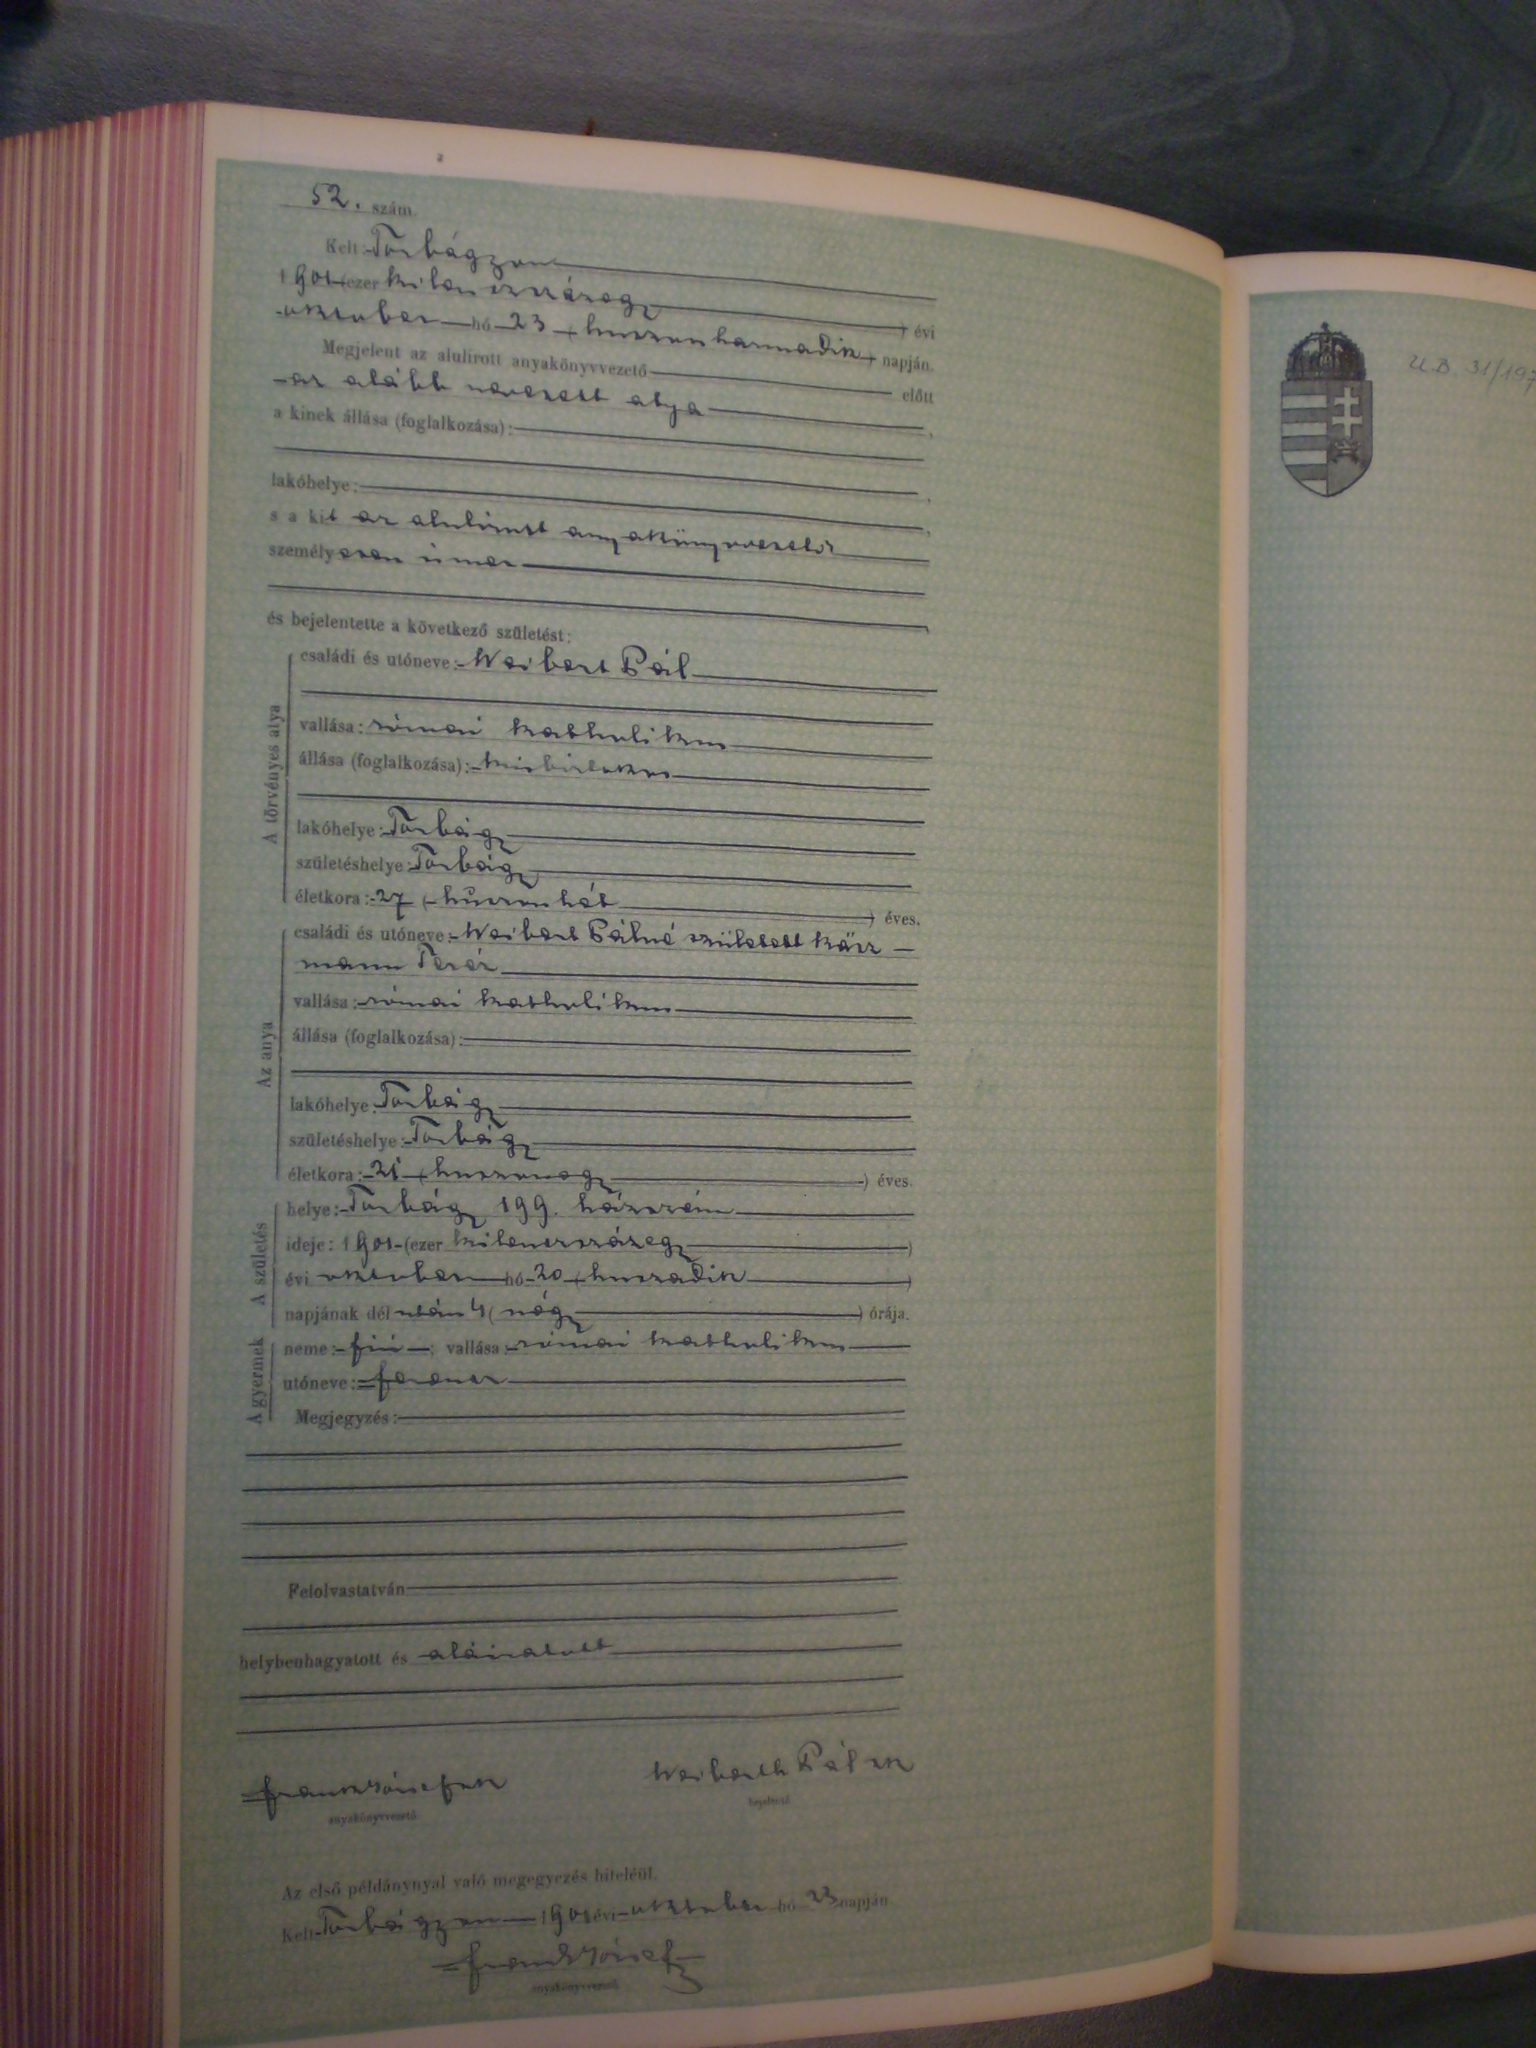 52. szám.
Kelt: Torbágyon
1901 (ezer kilenczszázegy) évi
október hó 23 (huszonharmadik) napján.
Megjelent az alulirott anyakönyvvezető előtt
az alább nevezett atya,
a kinek állása (foglalkozása):
lakóhelye:
s a kit az alulirott anyakönyvvezető
személyesen ismer
és bejelentette a következő születést:
A törvényes atya
családi és utóneve: Weibert Pál
vallása: római katholikus
állása (foglalkozása): kisbirtokos
lakóhelye: Torbágy
születéshelye: Torbágy
életkora: 27 (huszonhét) éves.
Az anya
családi és utóneve: Weibert Pálné született Käsz-
mann Teréz
vallása: római katholikus
állása (foglalkozása):
lakóhelye: Torbágy
születéshelye: Torbágy
életkora: 21 (huszonegy) éves.
A születés
helye: Torbágy 199. házszám
ideje: 1901 (ezer kilenczszázegy)
évi október hó 20 (huszadik)
napjának dél után 4 (négy) órája.
A gyermek
neme: fiú; vallása: római katholikus
utóneve: Ferencz
Megjegyzés:
Felolvastatván
helybenhagyatott és aláiratott
Frank József sk Weiberth Pál sk
anyakönyvvezető bejelentő
Az első példánynyal való megegyezés hiteléül.
Kelt Torbágyon 1901 évi október hó 23 napján
Frank József
anyakönyvvezető
U.B. 31/197